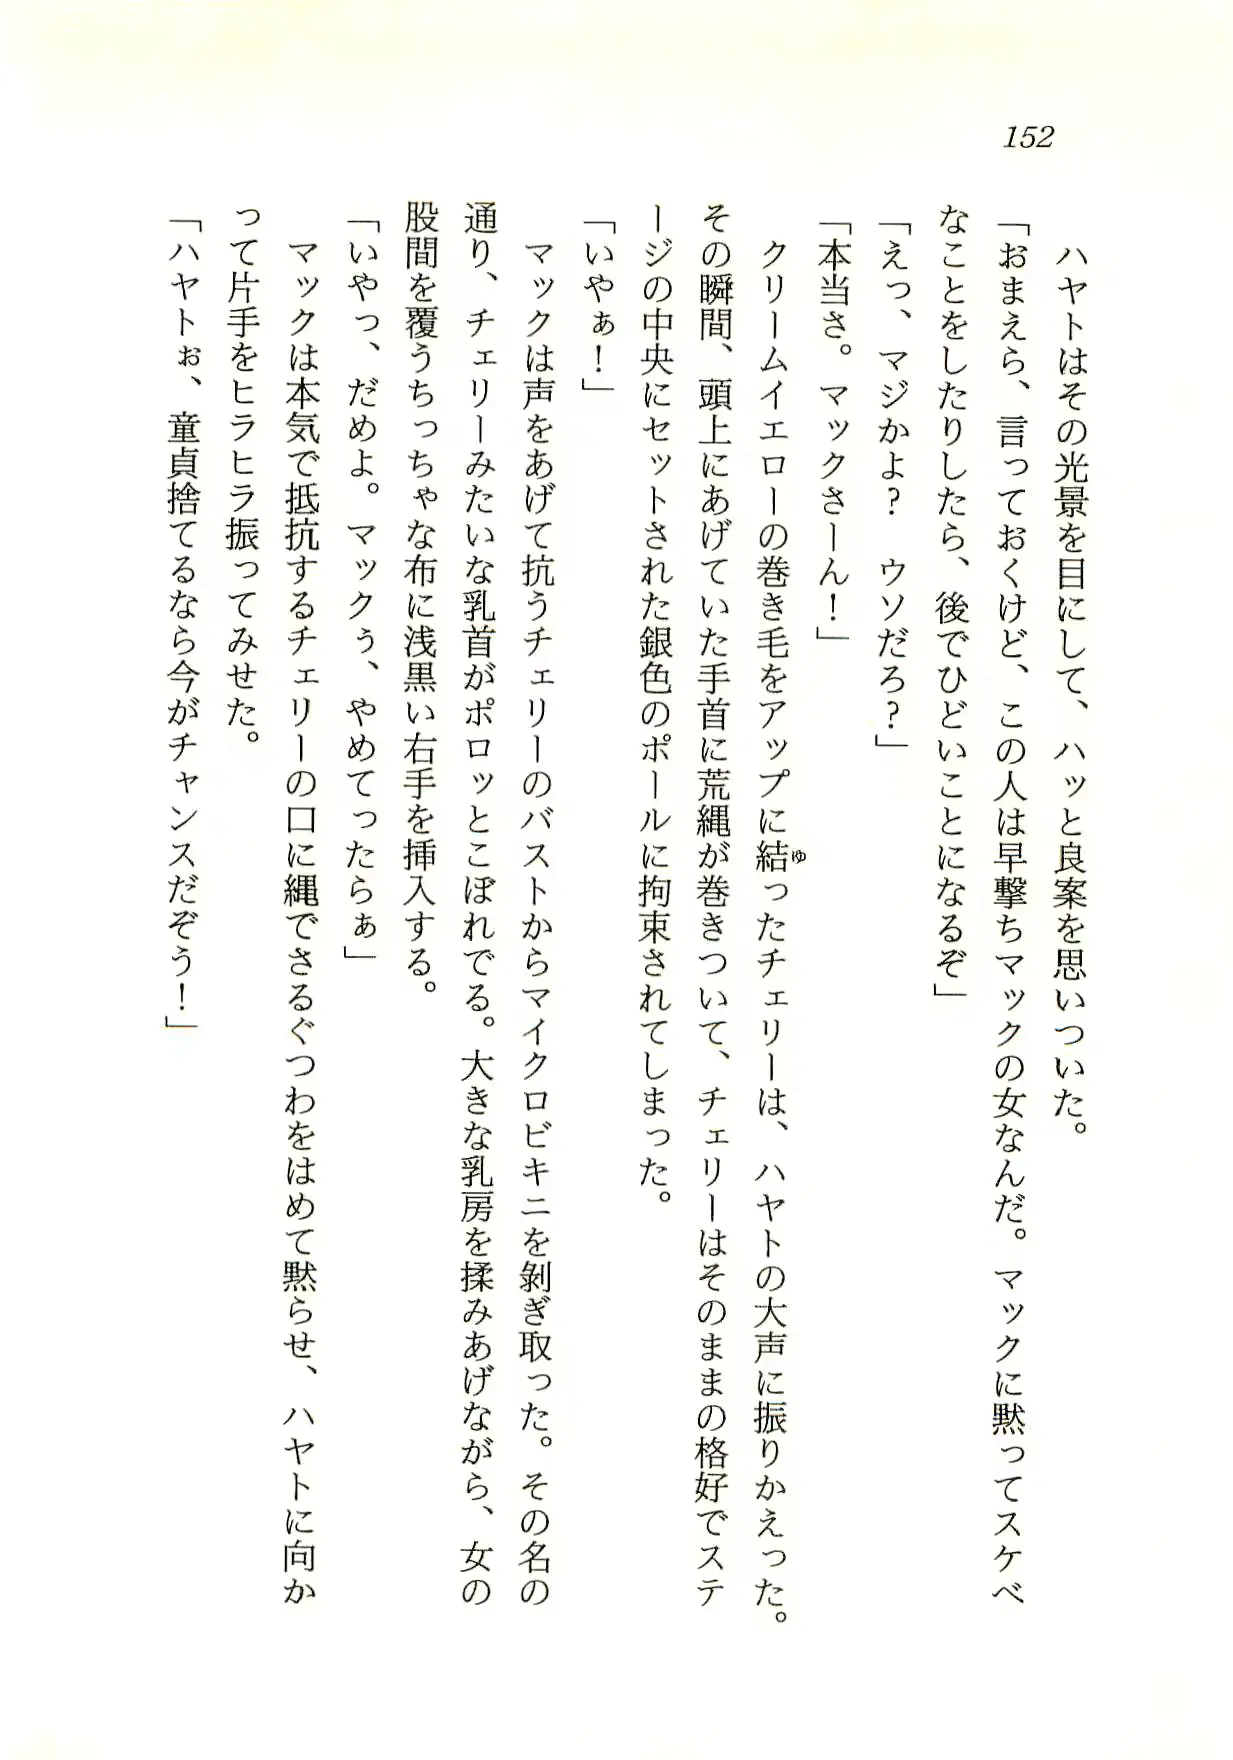 152
ハヤトはその光景を目にして、ハッと良案を思いついた。
「おまえら、言っておくけど、この人は早撃ちマックの女なんだ。マックに黙ってスケベ
なことをしたりしたら、後でひどいことになるぞ」
「えっ、マジかよ？　ウソだろ？」
「本当さ。マックさーん！」
クリームイエローの巻き毛をアップに結ゆったチェリーは、ハヤトの大声に振りかえった。
その瞬間、頭上にあげていた手首に荒縄が巻きついて、チェリーはそのままの格好でステ
ージの中央にセットされた銀色のポールに拘束されてしまった。
「いやぁ！」
マックは声をあげて抗うチェリーのバストからマイクロビキニを剝ぎ取った。その名の
通り、チェリーみたいな乳首がポロッとこぼれでる。大きな乳房を揉みあげながら、女の
股間を覆うちっちゃな布に浅黒い右手を挿入する。
「いやっ、だめよ。マックぅ、やめてったらぁ」
マックは本気で抵抗するチェリーの口に縄でさるぐつわをはめて黙らせ、ハヤトに向か
って片手をヒラヒラ振ってみせた。
「ハヤトぉ、童貞捨てるなら今がチャンスだぞう！」